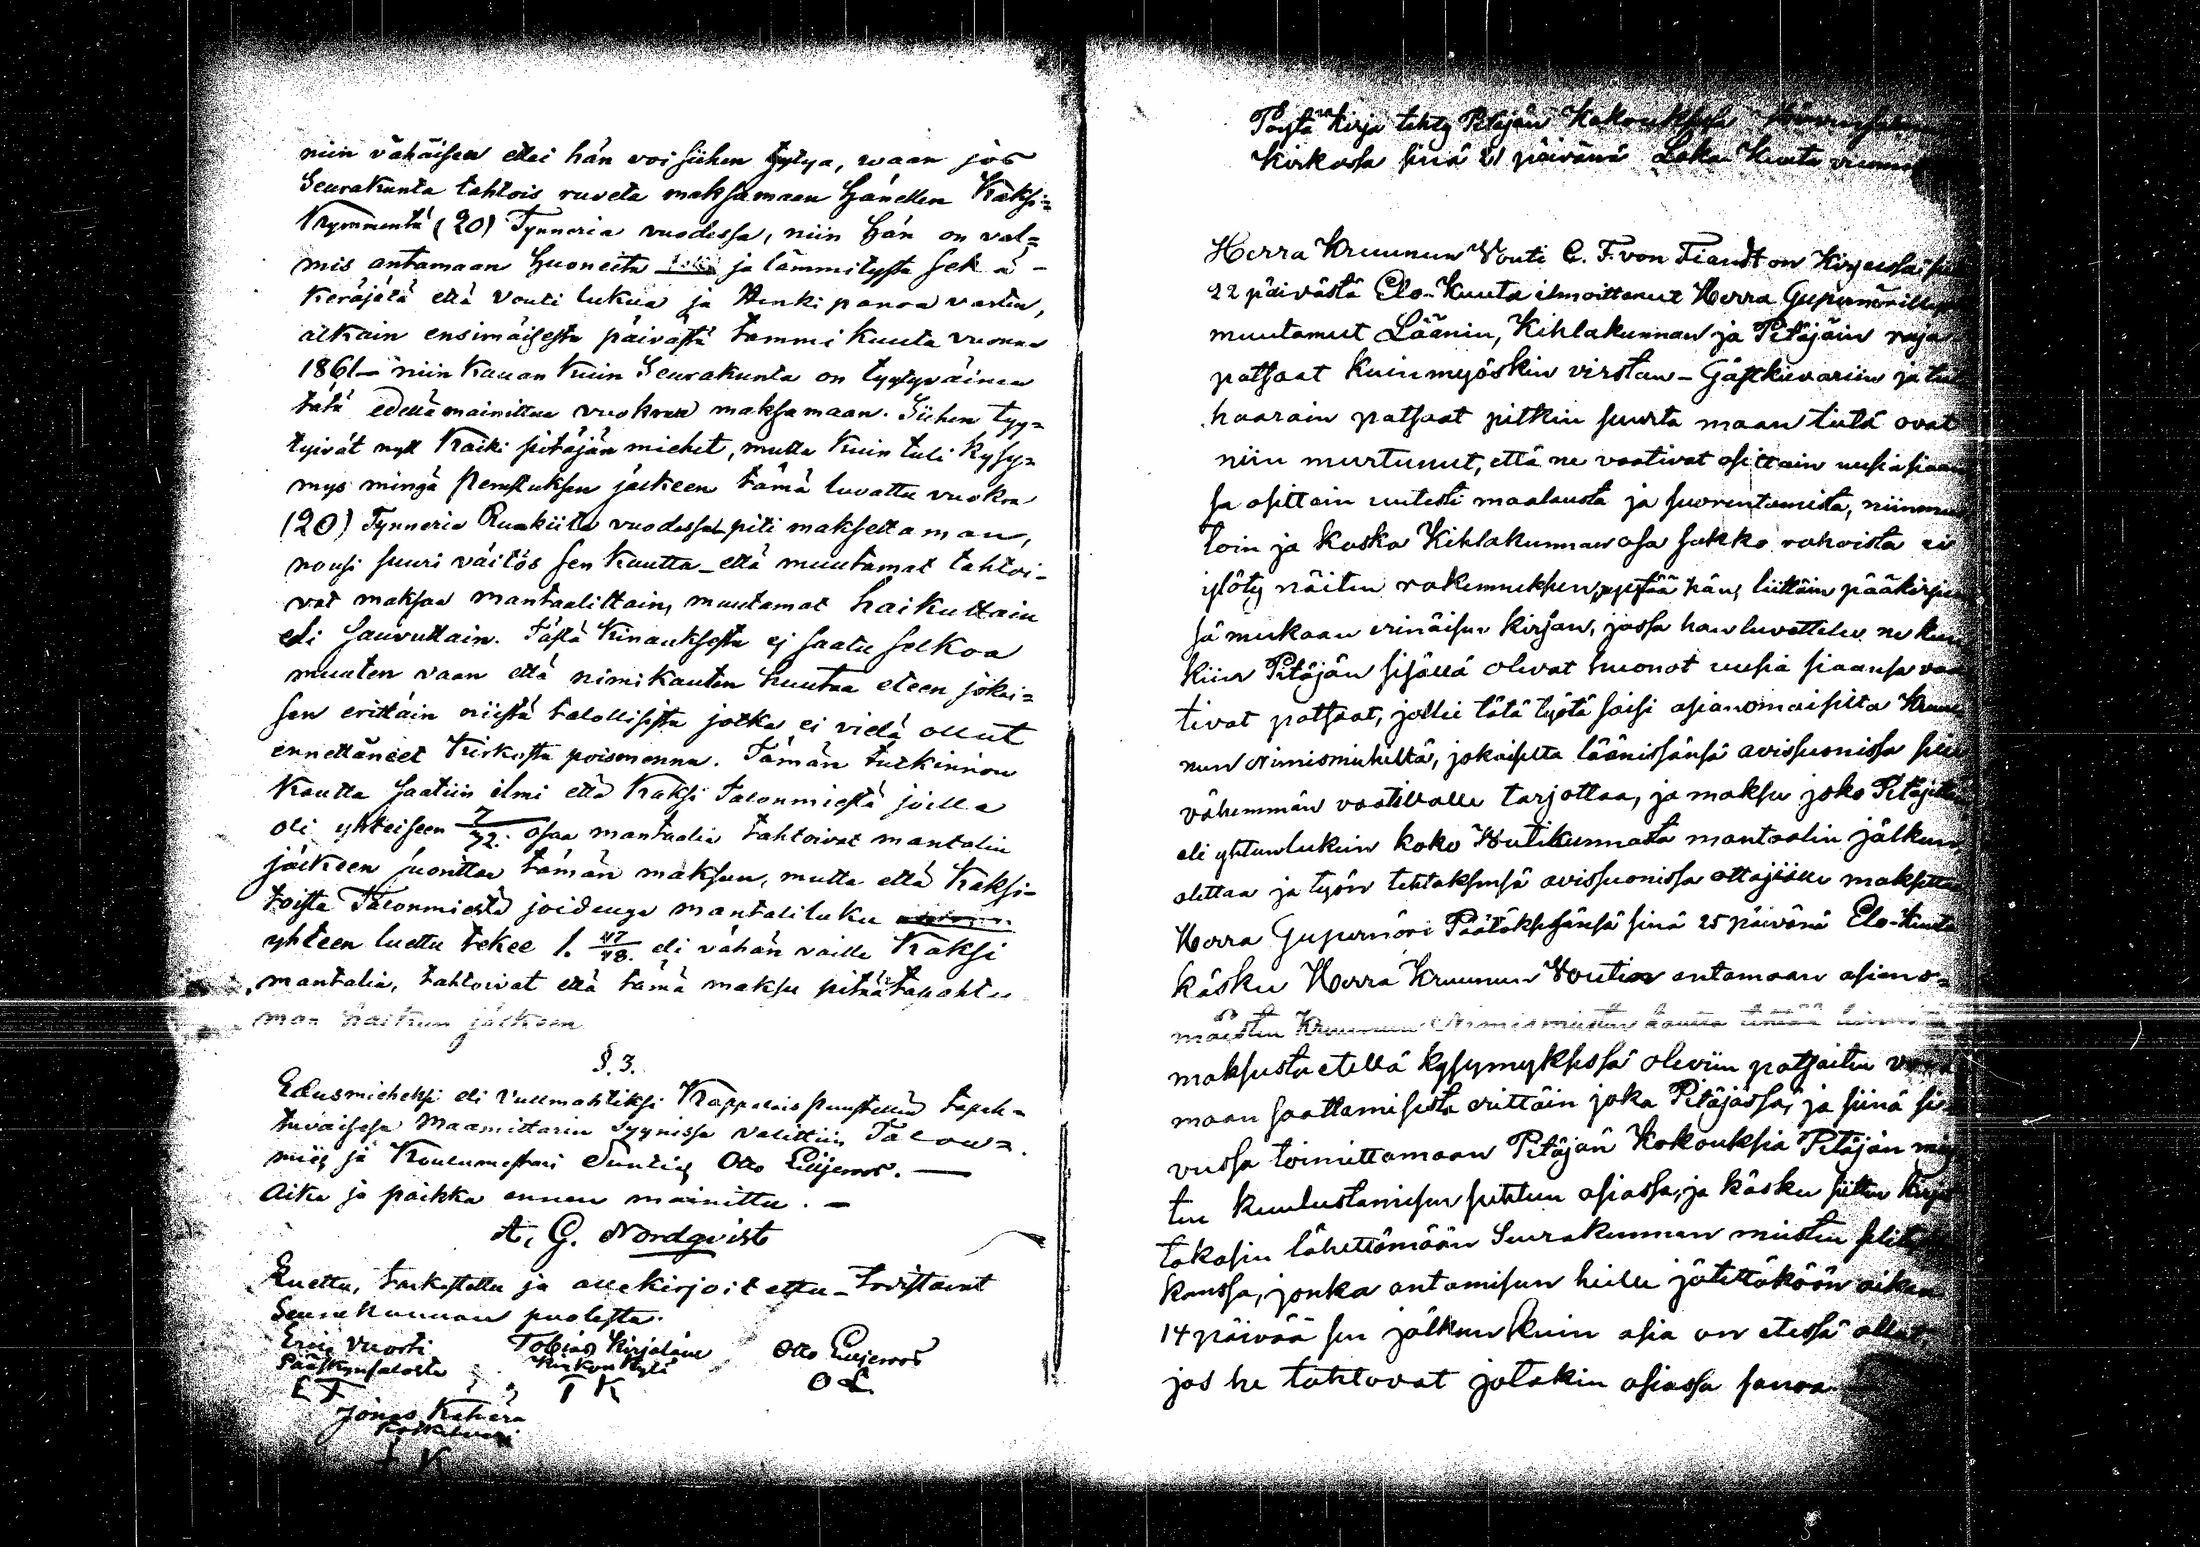 niin vähäisen ettei hän voi siihen tytya, waan jos
Seurakunta tahtois ruveta maksamaan Hänellen Kaksi=
Kymmentä (20) Tynneria vuodessa, niin Hän on val=
mis antamaan Huoneita ja lämmitystä sek ä -
Keräjätä että Vouti lukua ja Henki panoa varten,
alkain ensimäisestä päivästä tammi kuuta vuonna
1861 - niin Kauan Kuin Seurakunta on tyytyväinen
tätä edellämainittua vuokraa maksamaan. Siihen tyy=
tyivät nytt Kaiki pitäjän miehet, mutta Kuin tuli Kysy=
mys mingä Perustuksen jälkeen tämä luvattu vuokra
(20) Tynneria Ruokiita vuodessa piti maksettaman,
nousi suuri väitös sen Kautta - että muutamat tahtoi-
vat maksaa mantaalittain, muutamat haikuttain
eli Sauvuttain. Tästä Kinauksesta ej saatu selkoa
muuten vaan että nimikauten huutaa eteen jokai=
sen erittäin niistä talollisista jotka ei vielä ollut
ennettäneet Kirkosta poismennä. Tämän tutkinnon
Kautta saatiin ilmi että Kaksi Talonmiestä joilla
oli yhteiseen 7/72. osaa mantaalia tahtoivat mantalin
jälkeen suorittaa tämän maksun, mutta että Kaksi-
toista Talonmiestä joidenga mantaliluku
yhteen luettu tekee 1. 47/48. eli vähän vaille Kaksi
mantalia, tahtoivat että tämä maksu pitää tapahtu
man haikun jälkeen
§. 3.
Edusmieheksi eli Vullmahtiksi Kappalais puustellin tapah=
tuvaisessa Maamittarin Syynissä valittiin Talon=
mies ja Koulumestari Otto Liljeroos. -
Aika ja paikka ennen mainittu. -
A. G. Nordqvist
Luettu, tarkastettu ja allekirjoitettu - todistavat
Seurakunnan puolesta.
Eric Vuosti Tobias Kirjalain Otto Liljeroos
Pääskynsalosta Kirkon Kylä
E V T K O L
Jonas Kähärä
J K
Pöytä Kirja tehty Pitäjän Kokouksessa
Kirkossa sinä 21 päivänä Loka Kuuta vuonna
Herra Kruunun Vouti C. F. von Fiandt on Kirjeissä
22 päivästä Elo-Kuuta ilmoittanut Herra Gupernörille
muutamat Läänin, Kihlakunnan ja Pitäjäin raja
patsaat kuin myöskin virstan - Gästkievariin ja tien
haarain patsaat pitkin suurta maan tietä ovat
niin murtunut, että ne vaativat osittain uusia siaan
sa osittain uutesti maalausta ja suorentamista, niinmuo
toin ja koska Kihlakunnan osa sakko rahoista ei
ylöty näiten rakennuksen, pystää hän, liittäin pääkirjan
sä mukaan erinäisen kirjan, jossa han luettelee ne kun
kiin Pitäjän sisällä olevat huonot uusia siaansa vaa
tivat patsaat, jollei tätä työtä saisi asianomaisilta Kruu
nun Nimismiehiltä, jokaiselta läänissänsä avissuonissa sille
vähemmän vaativalle tarjottaa, ja maksu joko Pitäjittäin
eli yhteenlukein koko Voutikunnasta mantaalin jälkeen
olettaa ja työn tehtaksensä avissuonissa ottajille maksettaa
Herra Gupernöri Päätöksesänsä sinä 25 päivänä Elo-Kuuta
käsku Herra Kruunun Voutin antamaan asiano=
maisten Kruunun Nimismiesten kautta tietää
maksusta etellä kysymyksessä olevien patsaiten
maan saattamisesta erittäin joka Pitäjässä, ja siinä si
vussa toimittamaan Pitäjän Kokouksia Pitäjän mies
ten kuulustamisen suhteen asiassa, ja käsku sitten kirjat
takasin lähettämään Seurakunnan miesten selityksen
kanssa, jonka antamiseen heille jätettäköön aikaa
14 päivää sen jälkeen kuin asia on etessä ollut
jos he tahtovat jotakin asiassa sanoa